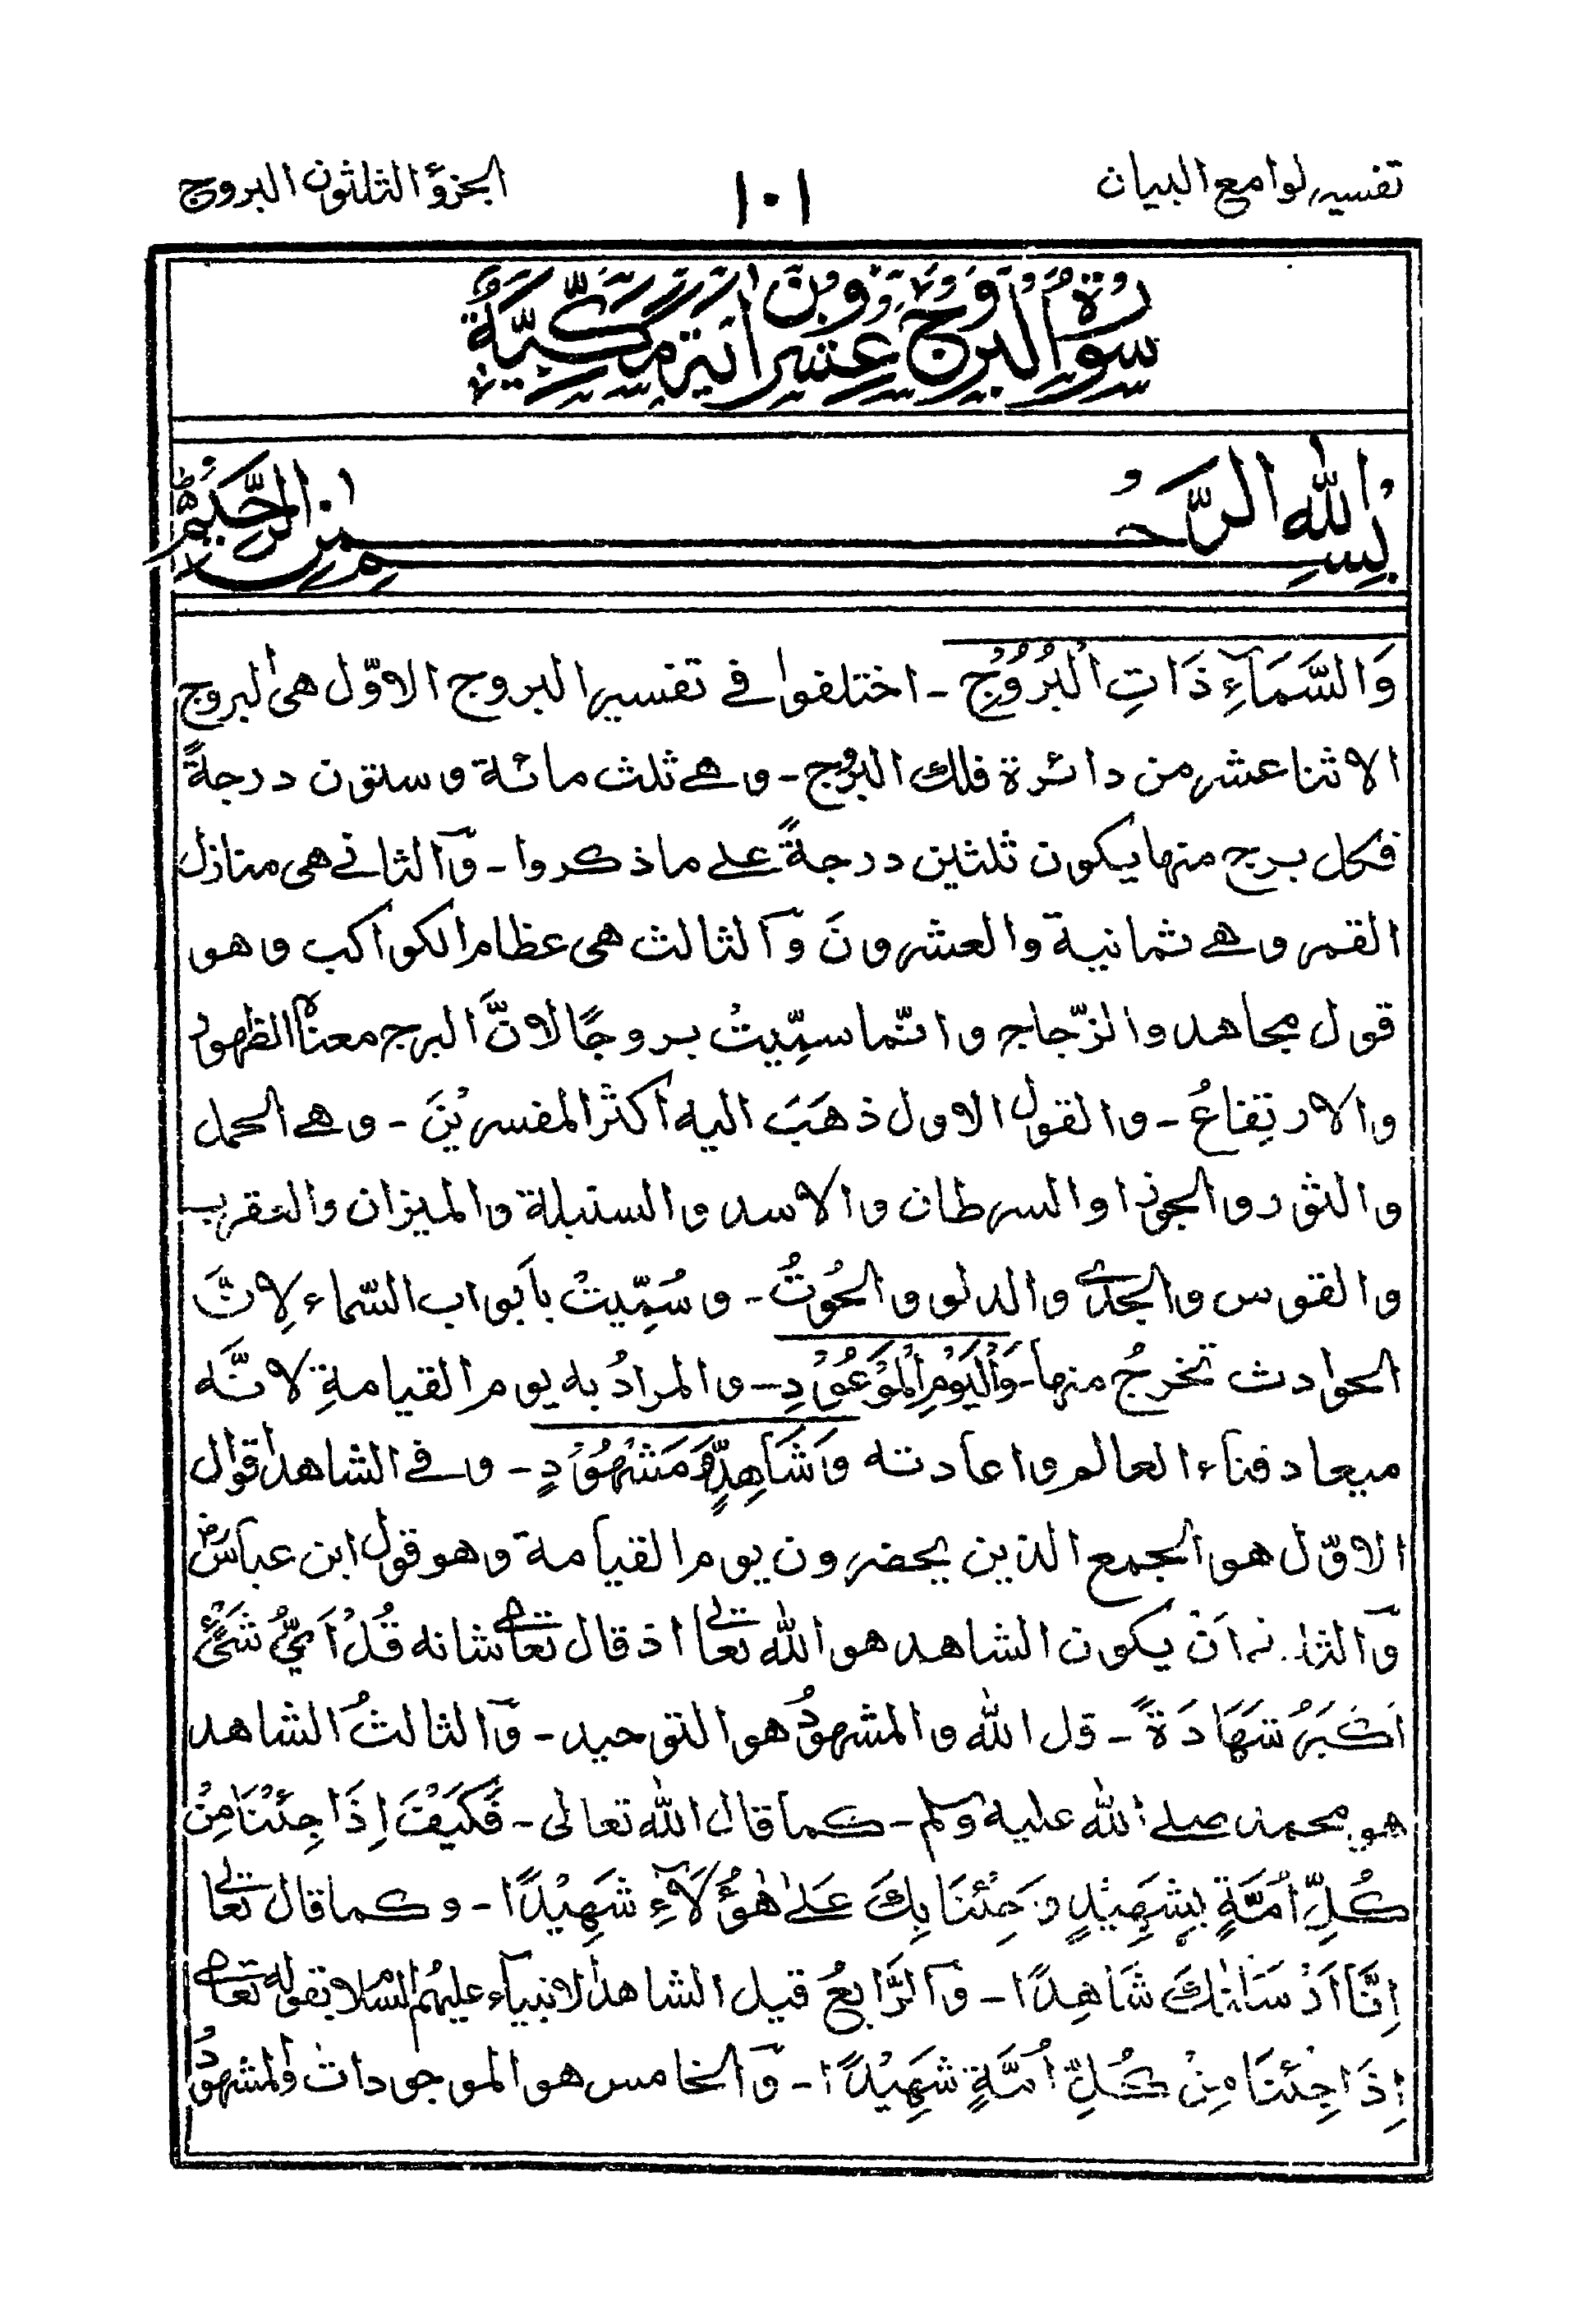 تفسير لوامع البيان
١٠١
الجزؤ الثلثون البروج
سورة البروج عشرون اٰية مكيّة
بسم الله الرحمن الرحيم
وَالسَّمَآءِ ذَاتِ الْبُرُوْجِ - اختلفوا فے تفسير البروج الاوّل هى البروج
الاثنا عشر من دائرة فلك البروج - وهے ثلث مائة وستون درجةً
فكل برج منها يكون ثلثين درجةً علے ما ذكروا - وَالثانے هى منازل
القمر وهے ثمانية والعشرونَ وَالثالث هى عظام الكواكب وهو
قول مجاهد والزّجاج وانّما سمِّيتْ بروجًا لانَّ البرج معناه الظهور
والارتِفاعُ - والقول الاول ذهَبَ اليه اكثر المفسرِيْنَ - وهے الحمل
والثور والجوزا والسرطان والاسد والسنبلة والميزان والعقرب
والقوس والجدے والدلو والحُوتُ - وسُمِّيتْ بابواب السّماء لِانَّ
الحوادث تخرجُ منها - وَالْيَوْمِ الْمَوْعُوْدِ - والمرادُ به يوم القيامةِ لانَّه
ميعاد فناء العالم واعادته وَشَاهِدٍ وَّمَشْهُوْدٍ - وفے الشاهد اقوال
الاوّل هو الجمع الذين يحضرون يوم القيامة وهو قول ابن عباسؓ
وَالثانے انْ يكون الشاهد هو الله تعالى اذ قال تعالى شانه قُلْ اَيُّ شَىْءٍ
اَكْبَرُ شَهَادَةً - قل الله والمشهودُ هو التوحيد - وَالثالثُ الشاهد
هو محمد صلے الله عليه وسلم - كما قال الله تعالى - فَكَيْفَ اِذَا جِئْنَا مِنْ
كُلِّ اُمَّةٍ بِشَهِيْدٍ وَجِئْنَا بِكَ عَلٰے هٰؤُلَآءِ شَهِيْدًا - وكما قال تعالى
اِنَّا اَرْسَلْنٰكَ شَاهِدًا - وَالرَّابعُ قيل الشاهد الانبياء عليهم السلام بقوله تعالى
اِذَا جِئْنَا مِنْ كُلِّ اُمَّةٍ شَهِيْدًا - وَالخامس هو الموجودات والمشهودُ